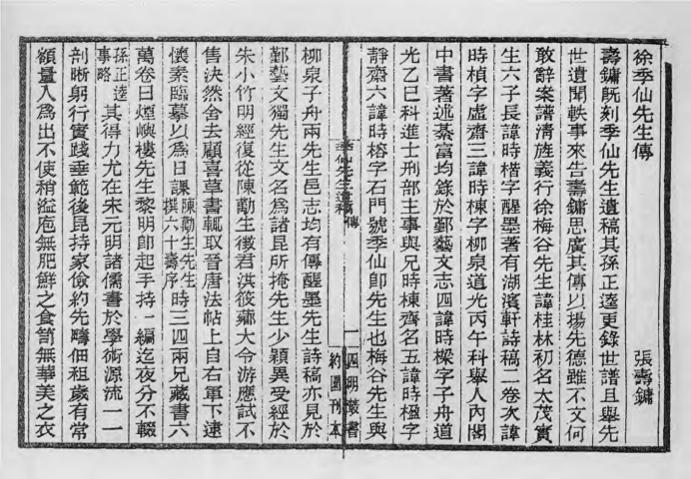 徐季仙先生傳　張壽鏞
壽鏞旣刻季仙先生遺稿其孫正逵更錄世譜且舉先
世遺聞軼事來告壽鏞思廣其傳以揚先德雖不文何
敢辭案譜淸旌義行徐梅谷先生諱桂林初名太茂實
生六子長諱時楷字醒墨著有湖濱軒詩稿二卷次諱
時楨字虛齋三諱時棟字柳泉道光丙午科舉人內閣
中書著述綦富均錄於鄞藝文志四諱時樑字子舟道
光乙巳科進士刑部主事與兄時棟齊名五諱時楹字
靜齋六諱時榕字石門號季仙卽先生也梅谷先生與
季仙先生遺稿　傳　一　四明叢書
約園刊本
柳泉子舟兩先生邑志均有傳醒墨先生詩稿亦見於
鄞藝文獨先生文名爲諸昆所掩先生少穎異受經於
朱小竹明經復從陳勱生徵君洪筱藏大令游應試不
售決然舍去顧喜草書輒取晉唐法帖上自右軍下逮
懷素臨摹以爲日課陳勱生先生撰六十壽序時三四兩兄藏書六
萬卷曰煙嶼樓先生黎明卽起手持一編迄夜分不輟
孫正逵事略其得力尤在宋元明諸儒書於學術源流一一
剖晰躬行實踐垂範後昆持家儉約先疇佃租歲有常
額量入爲出不使稍溢庖無肥鮮之食笥無華美之衣